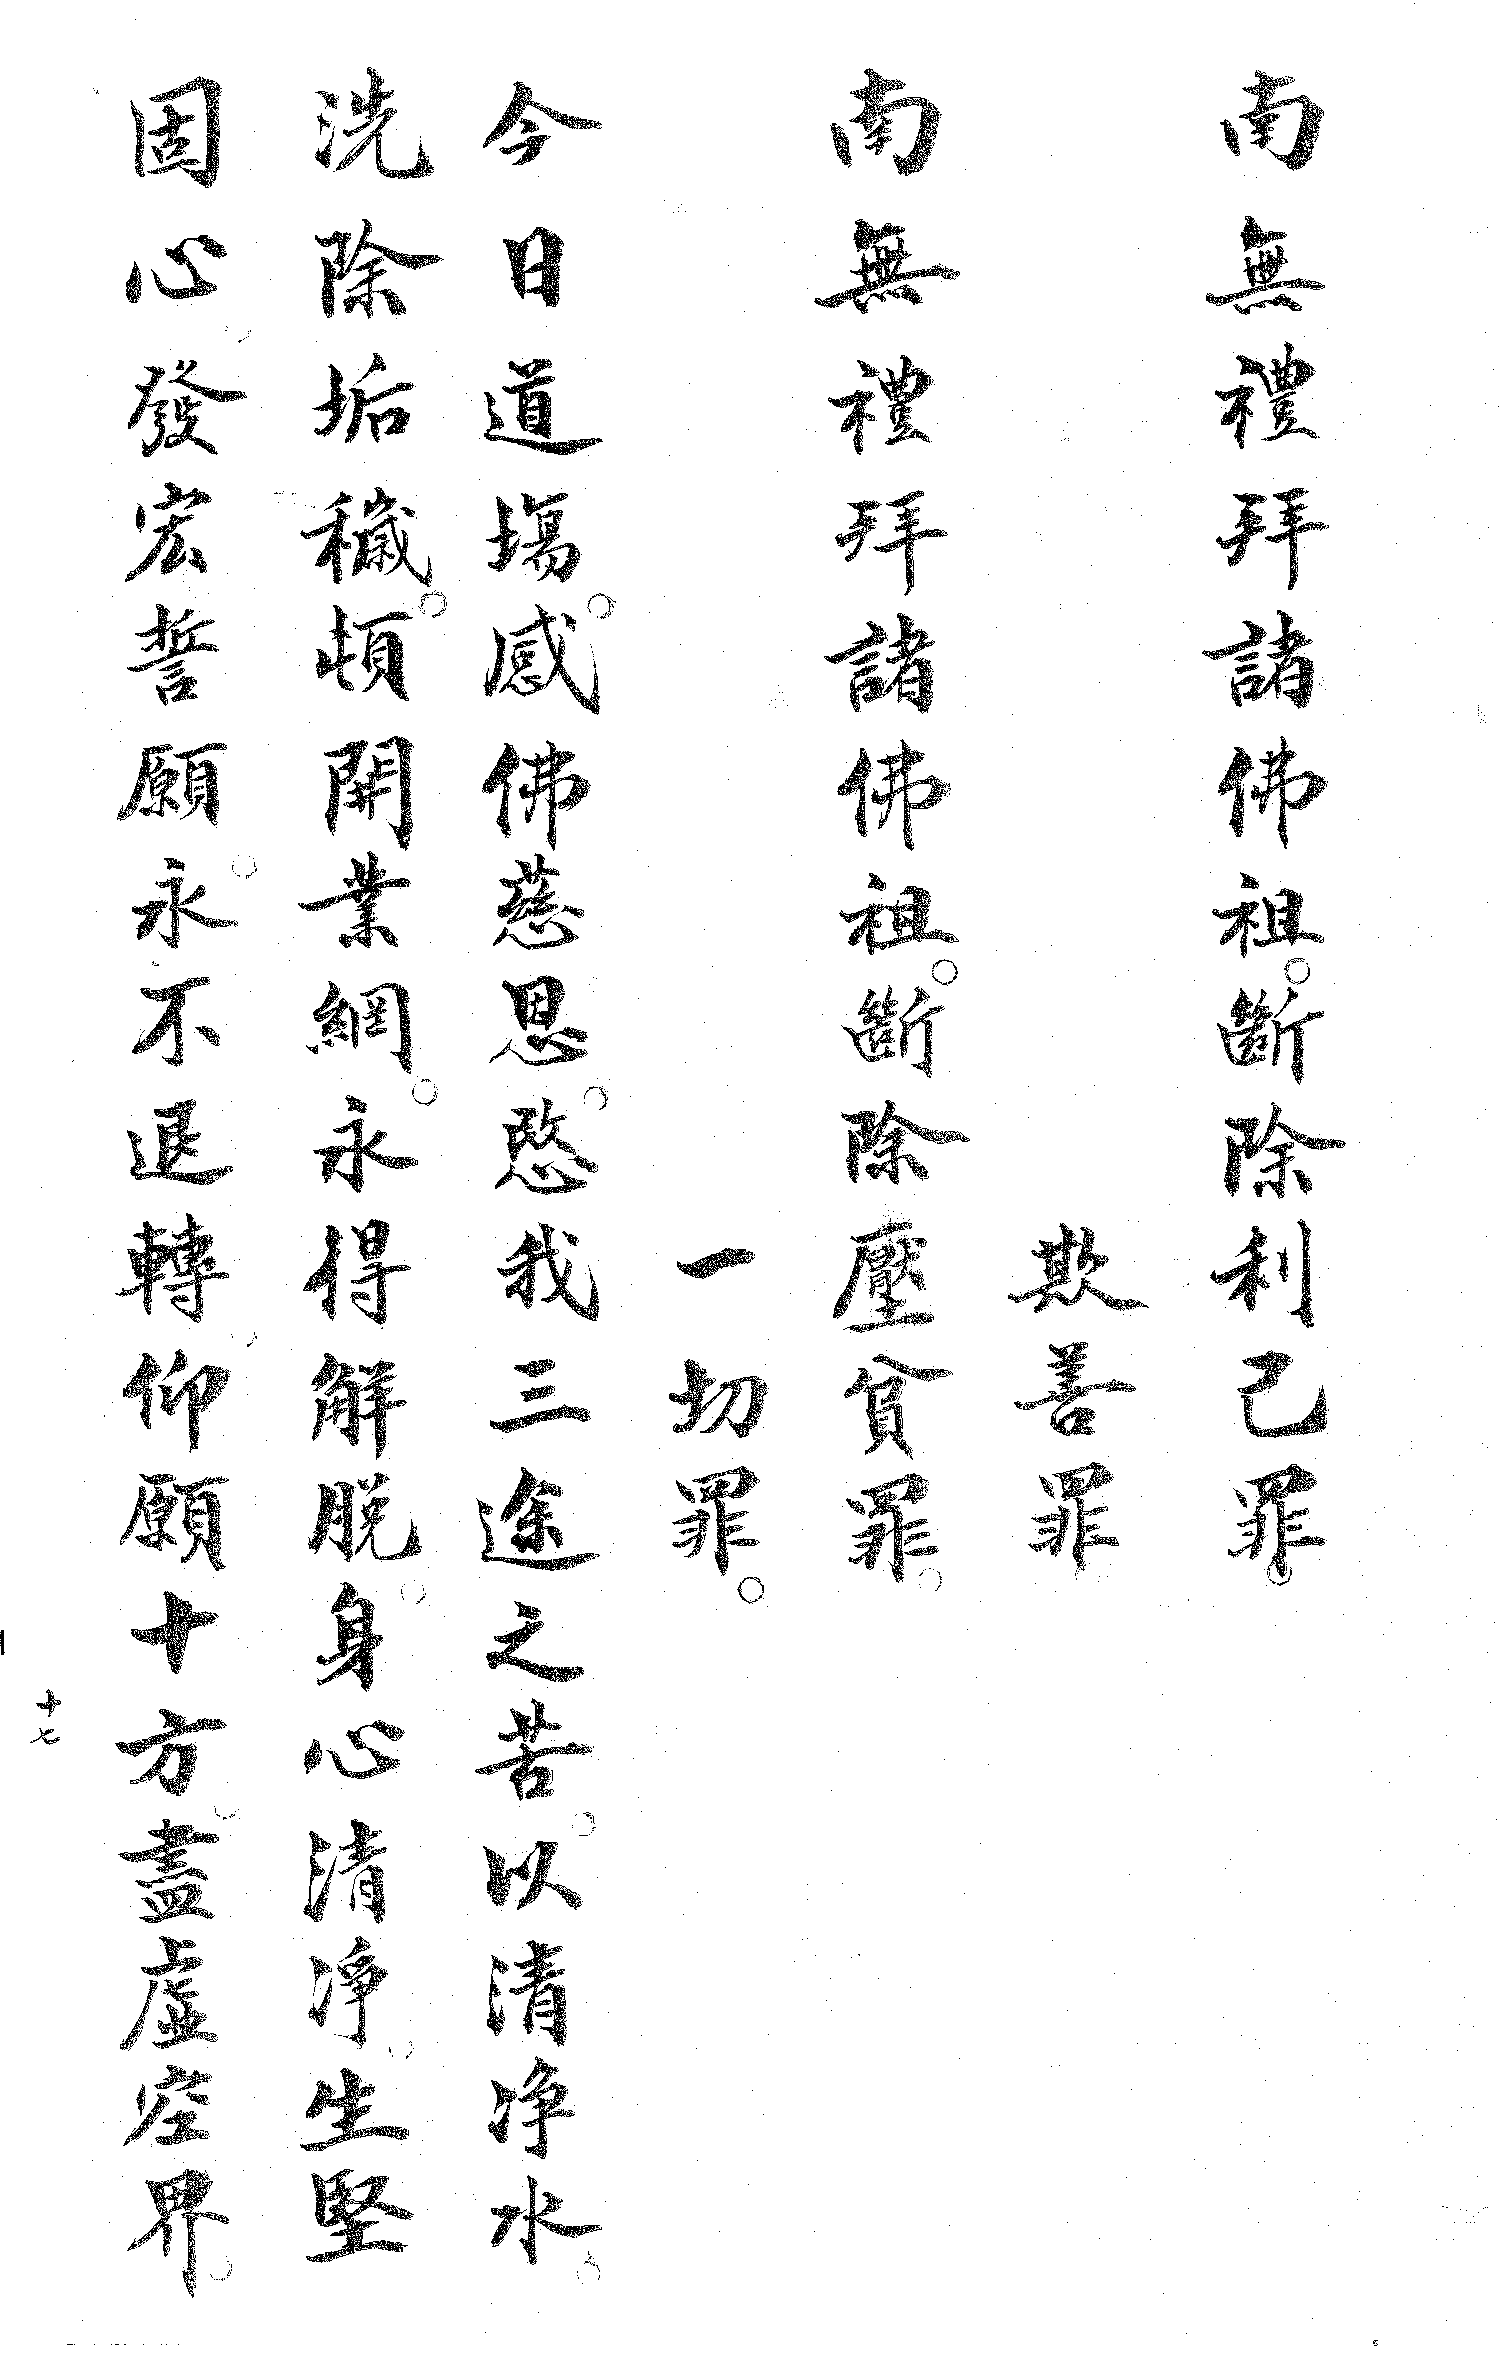 南無禮拜諸佛祖。斷除利己罪。
欺善罪
南無禮拜諸佛祖。斷除壓貧罪。
一切罪。
今日道塲。感佛慈恩。愍我三途之苦。以清淨水。
洗除垢穢。頓開業網。永得解脫。身心清淨。生堅
固心發宏誓願。永不退轉。仰願十方。盡虛空界。
十七